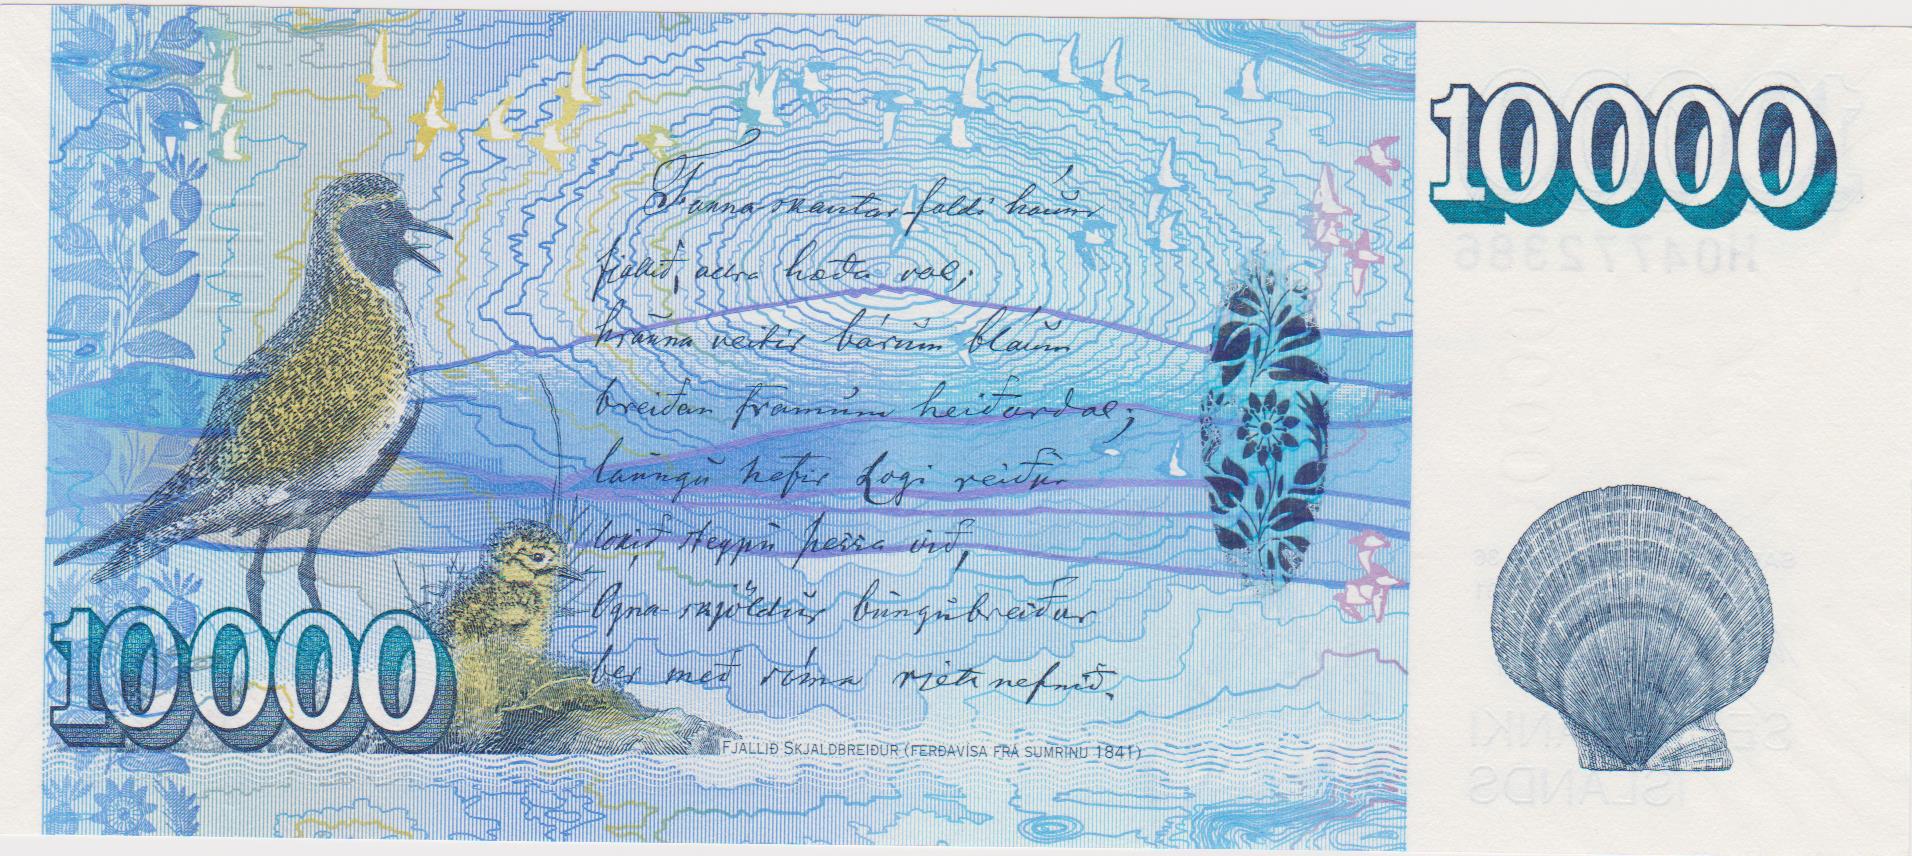 10000
H04772386
Fanna skautar faldi háŭm
fjallið, allra hæða val;
hraŭna veitir bárŭm bláŭm
breiðan framŭm heiðardal;
laŭngŭ hefir Logi reiðŭr
lokið steypŭ þessa við,
Ógna-skjöldŭr bŭngŭbreiðŭr
ber með sóma rjett nefnið.
10000
FJALLIÐ SKJALDBREIÐUR (FERÐAVÍSA FRÁ SUMRINU 1841)
ÍSLANDS